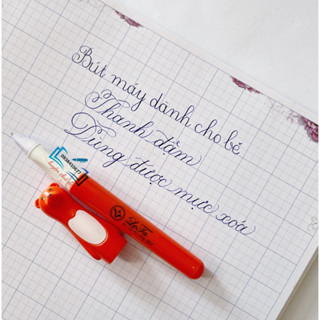 Bút máy dành cho bé
Thanh đậm
Dùng được mực xóa